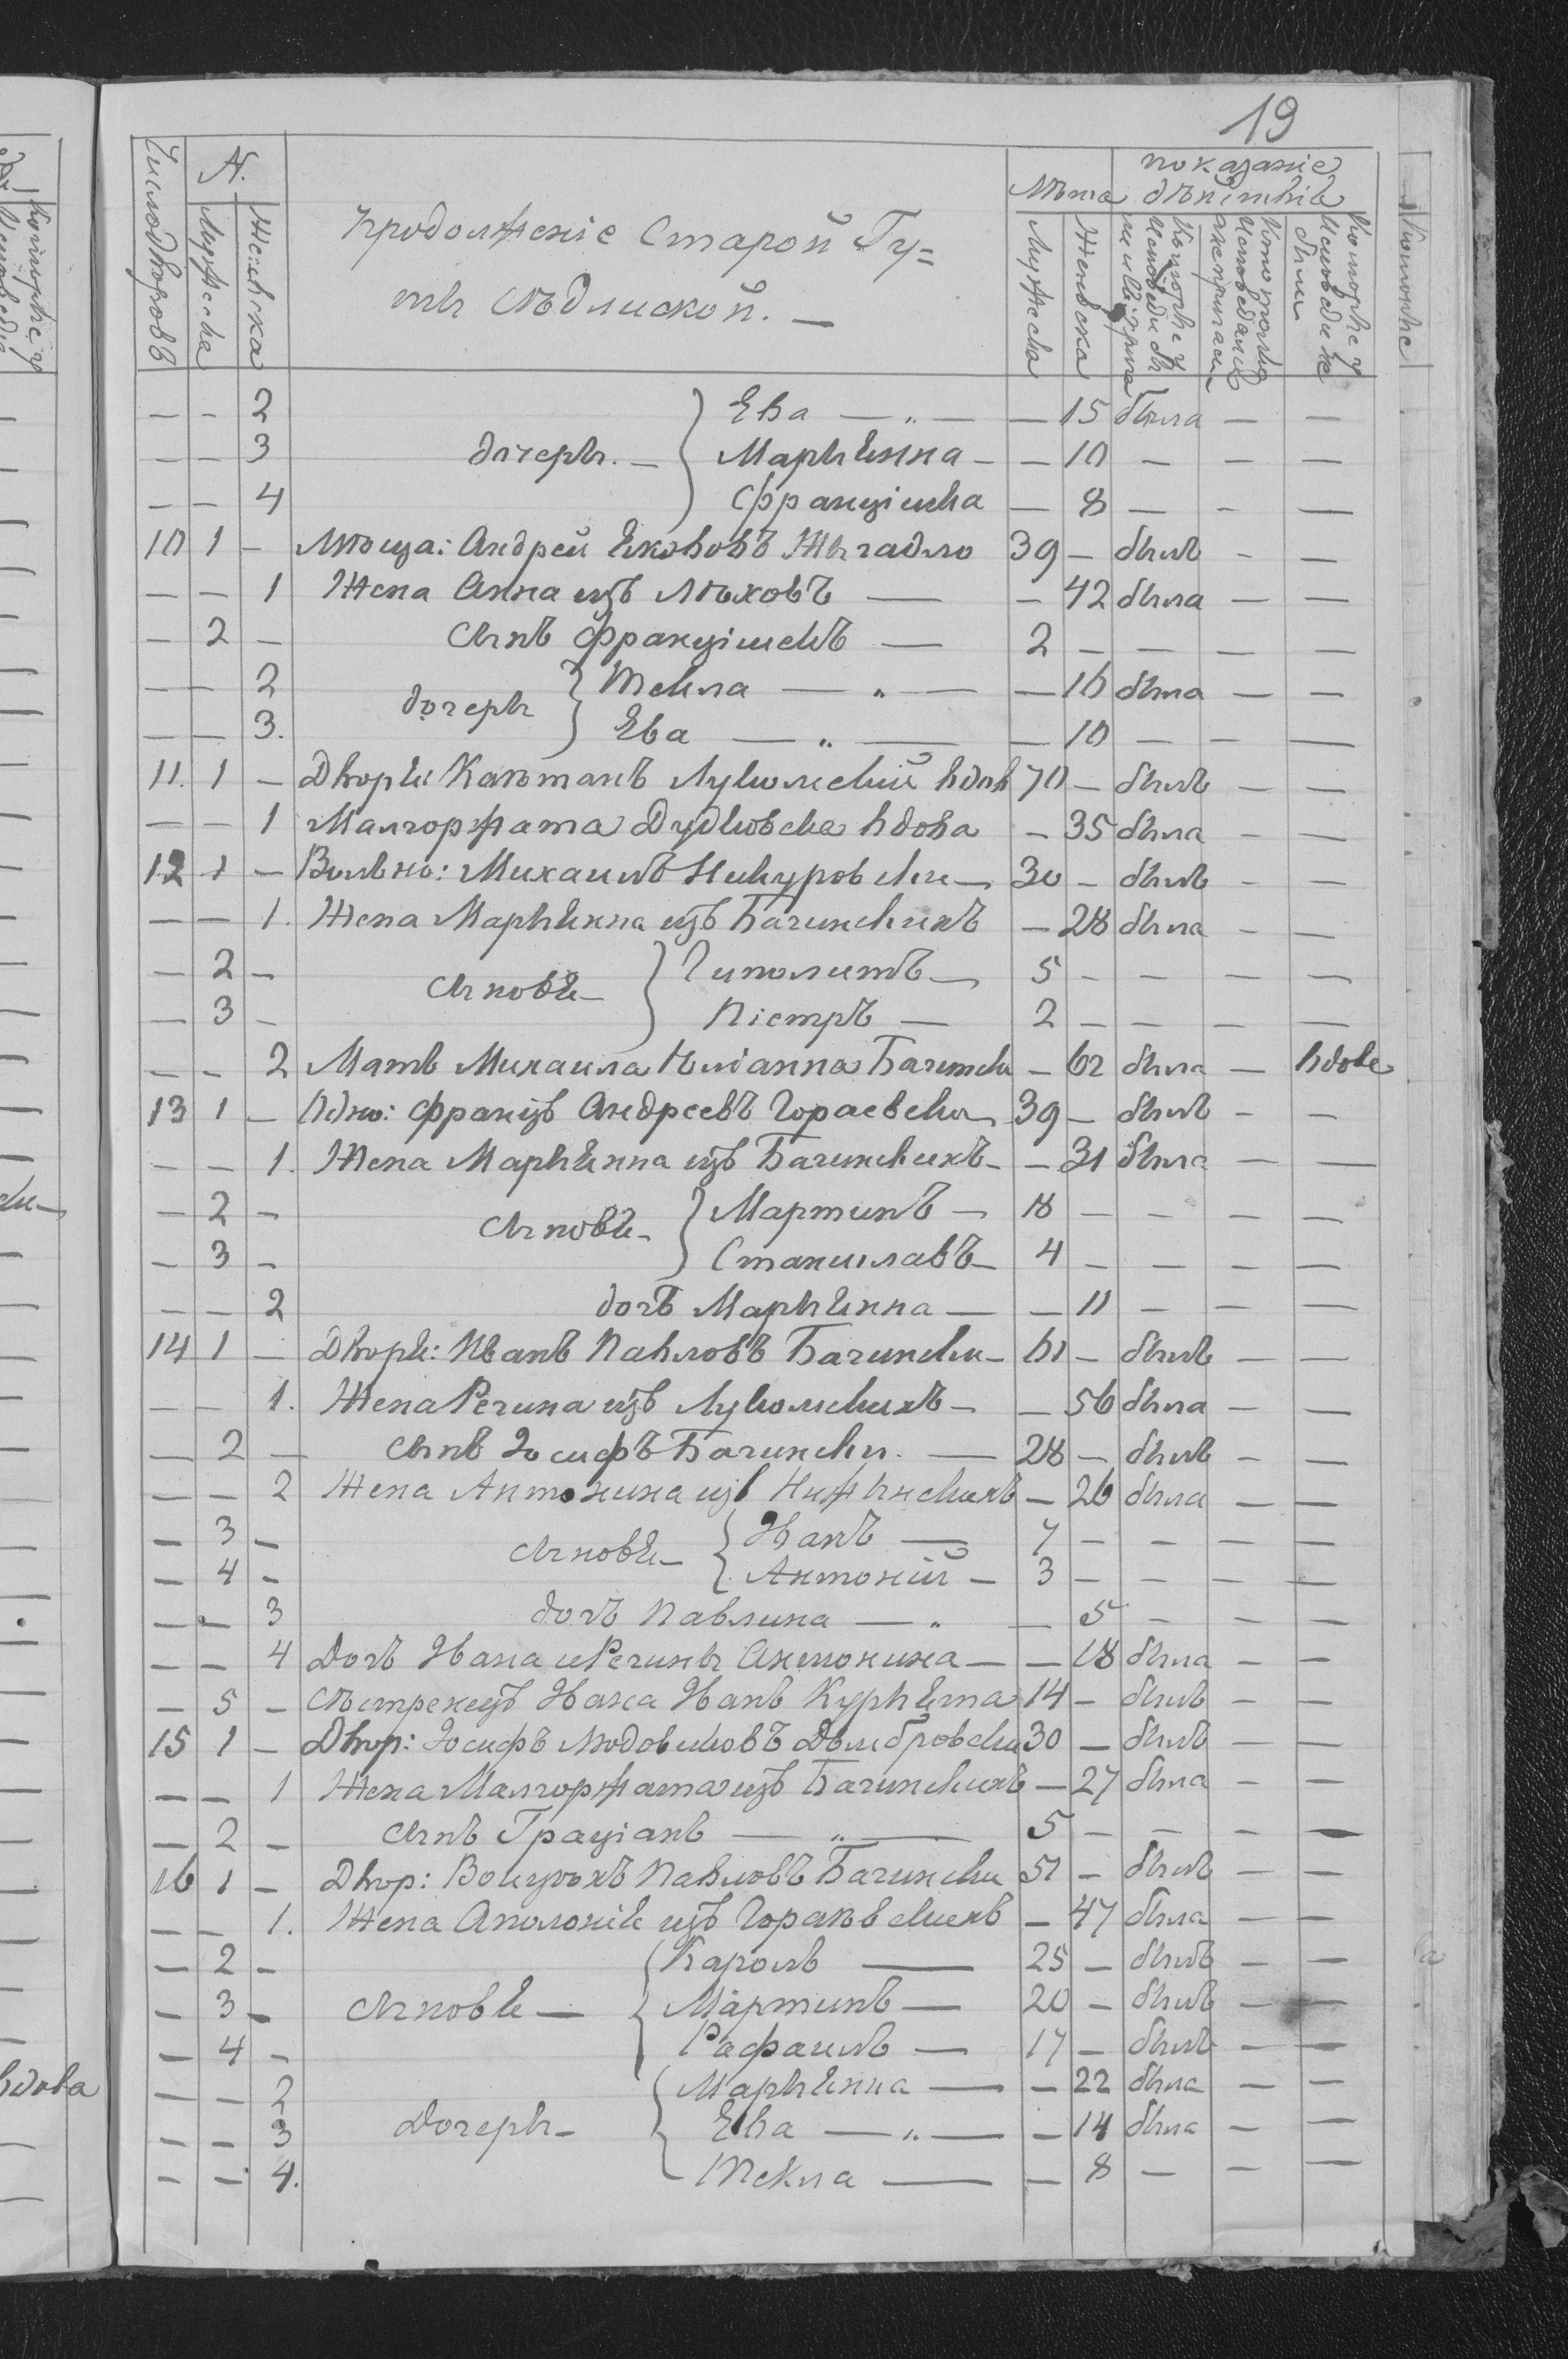 19
Число дворовъ
N.
Мужеска
Женска
продолженіе Старой Гу=
ты Слѣдлиской. —
Лѣта
показаніе
дѣйствія
Мужеска
Женска
Которые у Исповеди и
Которые у Исповеди не были
— — 2 Ева — „ — — 15 была — —
— — 3 дочеры. — Марыѣнна — — 10 — — —
— — 4 Францішка — 8 — — —
10 1 — Андрей Жыгадло 39 — былъ — —
— — 1 Жена Анна изъ Лѣховъ — — 42 была — —
— 2 — сынъ Францішекъ — 2 — — — —
— — 2 дочеры Текла — „ — — 16 была — —
— — 3. Ева — „ — — 10 — — —
11. 1 — Дворѣ: Каѣтанъ Лукомскій вдов 70 — былъ — —
— — 1 Малгоржата вдова — 35 была — —
12 1 — Вольно: Михаилъ 30 — былъ — —
— — 1. Жена Марыѣнна изъ Багинскихъ — 28 была — —
— 2 — сыновѣ — Гиполитъ — 5 — — — —
— 3 — Піетръ — 2 — — — —
— — 2 Мать Михаила Юліанна Багинска — 62 была — вдова
13 1 — Одно: Францъ Андреевъ Гораевски 39 — былъ — —
— — 1. Жена Марыѣнна изъ Багинскихъ — — 31 была — —
— 2 — сыновѣ — Мартинъ — 18 — — — —
— 3 — Станиславъ — 4 — — — —
— — 2 дочъ Марыѣнна — — 11 — — —
14 1 — Дворѣ: Иванъ Павловъ Багински — 61 — былъ — —
— — 1. Жена Регина изъ Лукомскихъ — — 56 была — —
— 2 — сынъ Іосифъ Багински. — 28 — былъ — —
— — 2 Жена Антонина изъ Нижынскихъ — 26 была — —
— 3 — сыновѣ — Иванъ — 7 — — — —
— 4 — Антоній — 3 — — — —
— — 3 дочъ Павлина — „ — 5 — — —
— — 4 Дочъ Ивана и Регины Антонина — — 18 была — —
— 5 — Сѣстренецъ Ивана Иванъ Курыѣта 14 — былъ — —
15 1 — Двор: Іосифъ Людовиковъ Домбровски 30 — былъ — —
— — 1 Жена Малгоржата изъ Багинскихъ — 27 была — —
— 2 — сынъ Граціанъ — „ — 5 — — — —
16 1 — Двор: Войцѣхъ Павловъ Багински 51 — былъ — —
— — 1. Жена Аполоніѣ изъ Гораѣвскихъ — 47 была — —
— 2 — Кароль — 25 — былъ — —
— 3 — сыновѣ — Мартинъ — 20 — былъ — —
— 4 — Рафаилъ — 17 — былъ — —
— — 2 Марыѣнна — — 22 была — —
— — 3 Дочеры — Ева — „ — — 14 была — —
— — 4. Текла — — 8 — — —
вдова